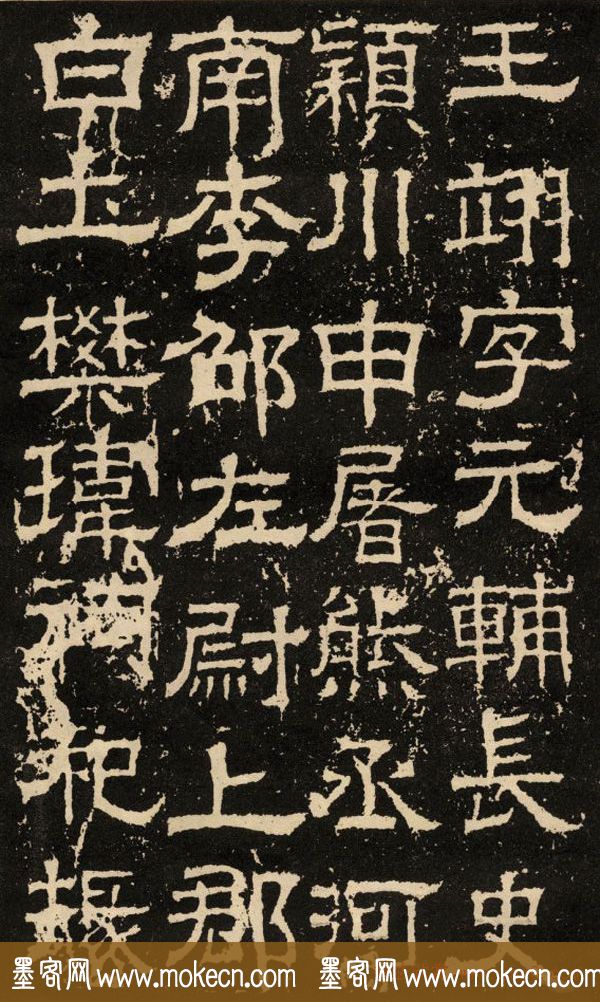 王翊字元輔長史
穎川申屠熊丞河
南李邵左尉上郡
白土樊瑋祠祀掾
墨客网 www.mokecn.com 墨客网 www.mokecn.com